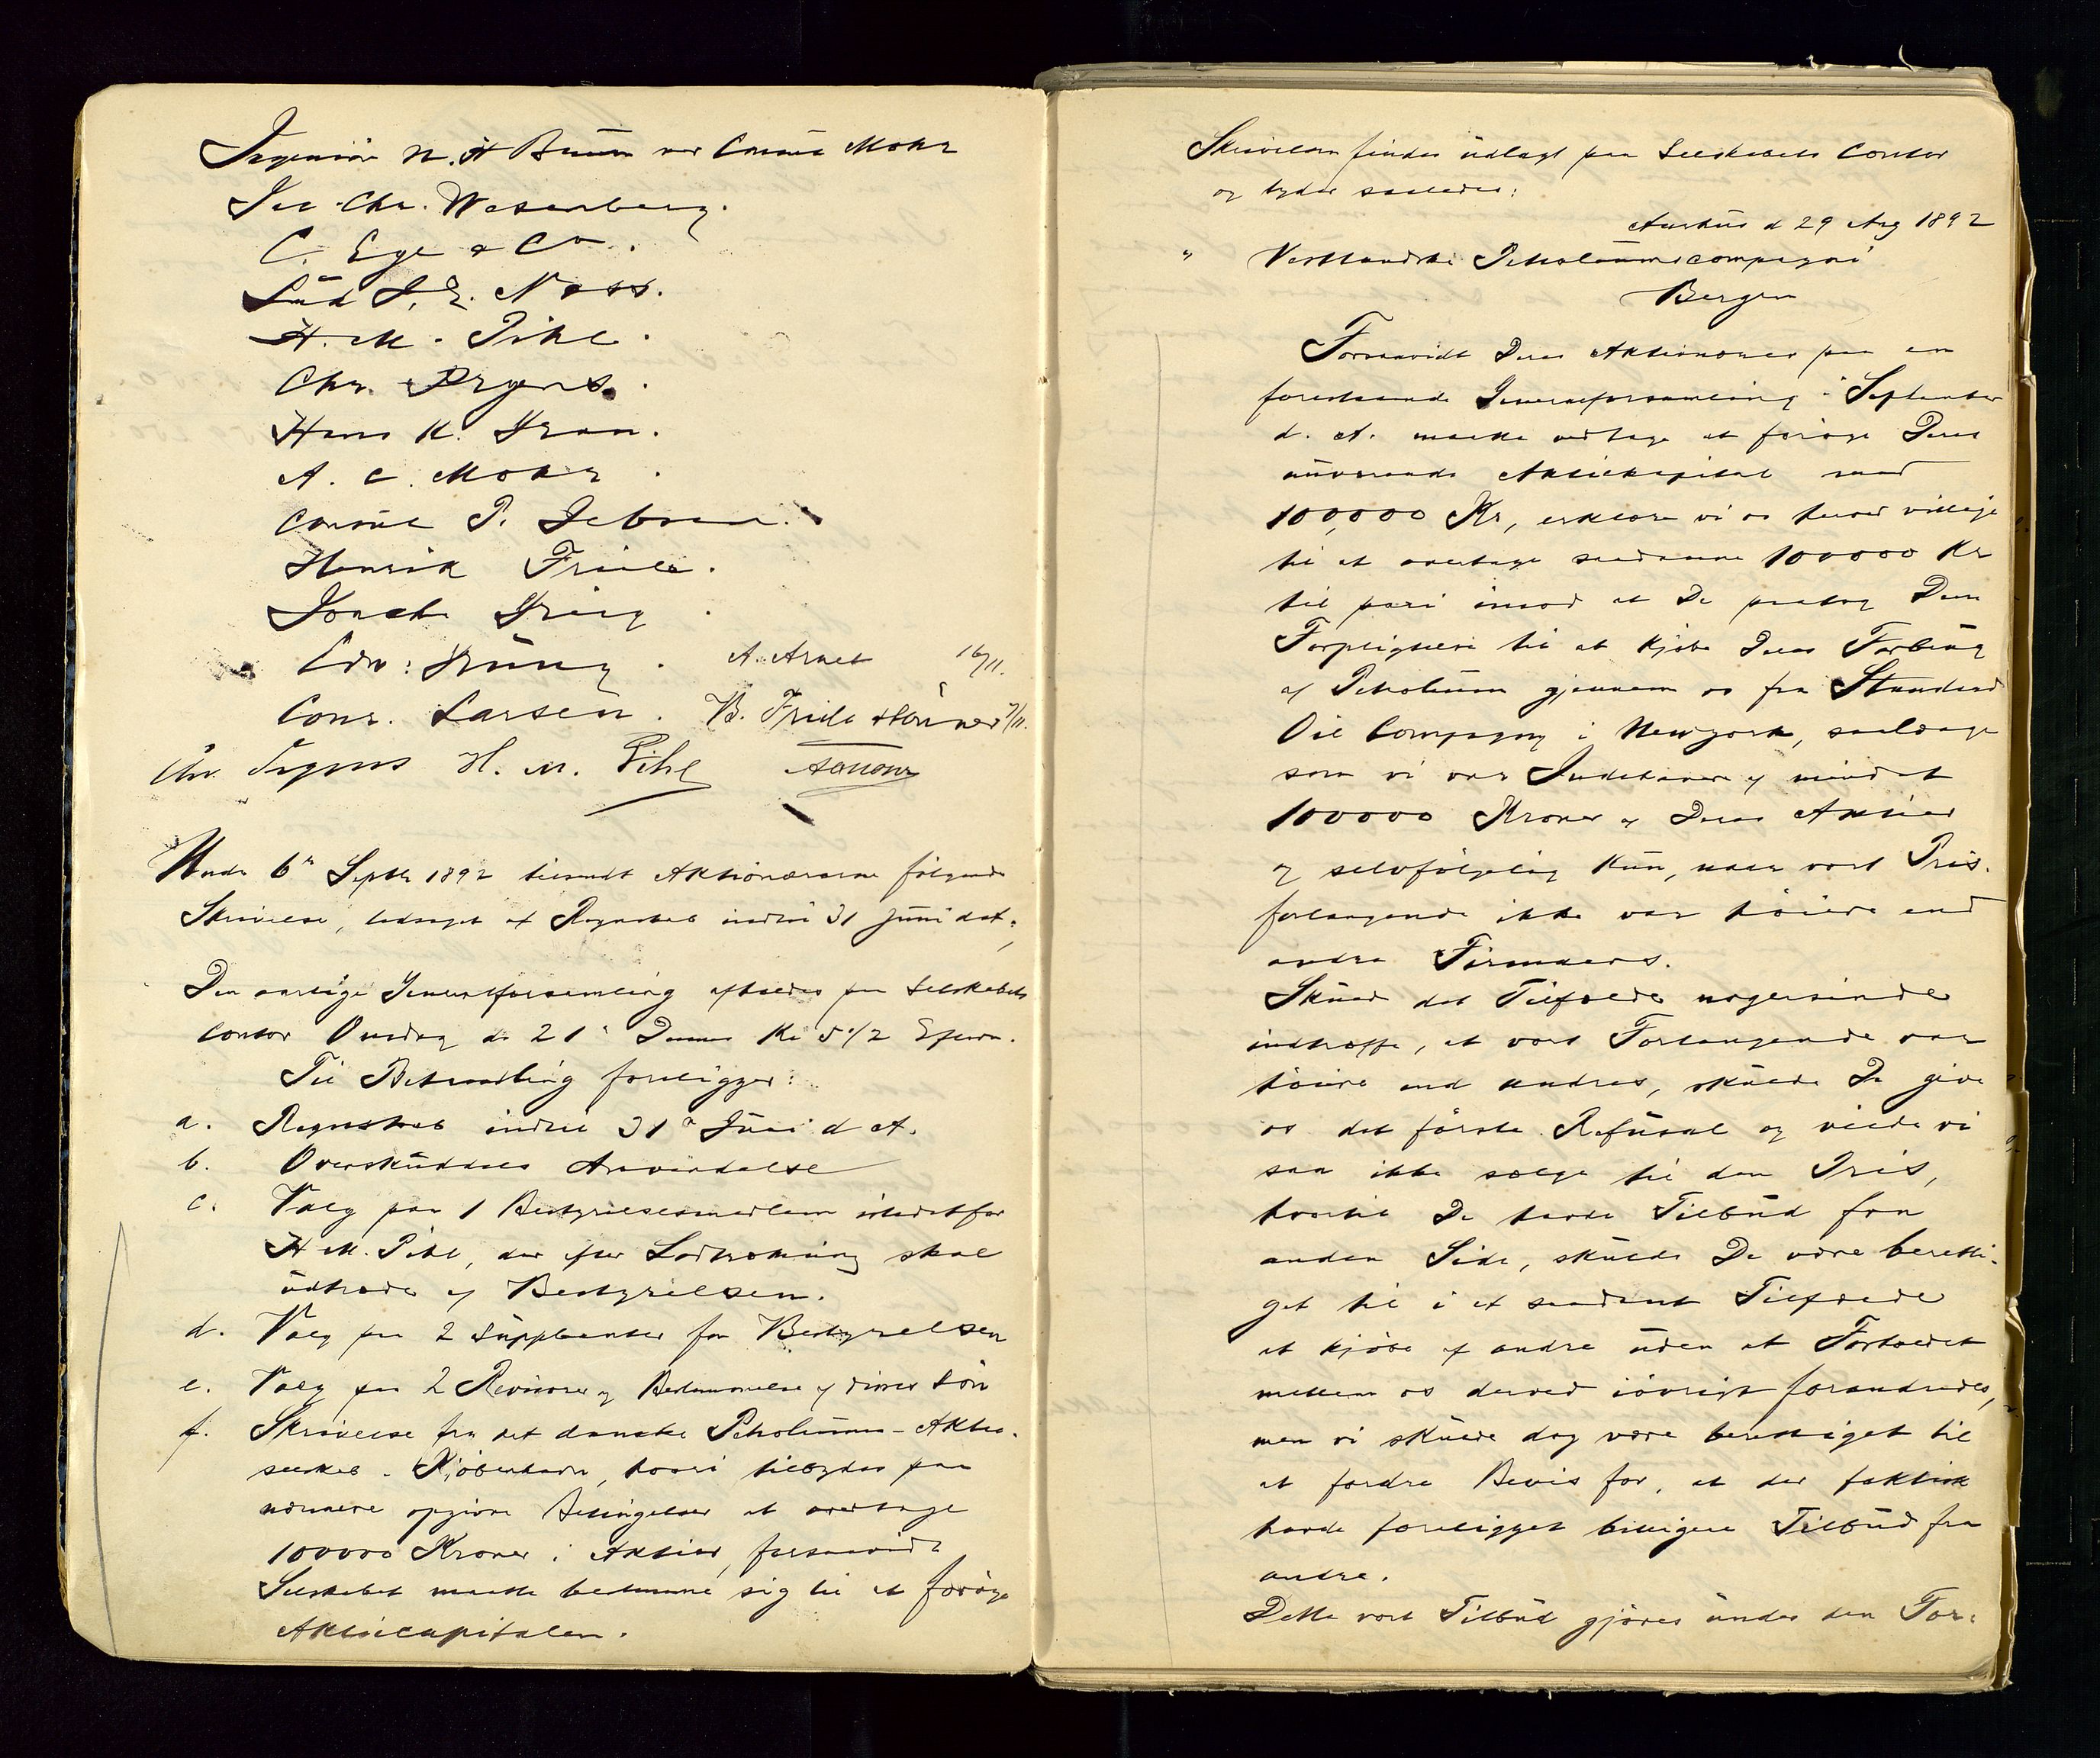 Ingeniör N. H Bruun ved Consul Mohr
Jac. Chr. Wesenberg.
C. Ege & Co.
Lud J. E. Næss.
H. M. Pihl.
Chr. Irgens.
Hans K. Gran.
A. C. Mohr.
Consul P. Jebsen.
Henrik Friele.
Joach. Grieg.
Edv: Grieg. A. Arnet 16/11.
Conr. Larsen. B. Friele &Sönner 7/11.
Chr. Irgens H. M. Pihl
Under 6te Septbr 1892 tilsendt Aktionærerne følgende
Skrivelse, ledsaget af Regnskab indtil 31 Juni dat:
Den aarlige Generalforsamling afholdes paa Selskabets
Contor Onsdag d. 21de Dennes Kl 5 1/2 Efterm.
Til Behandling foreligger:
a. Regnskab indtil 31te Juni d A.
b. Overskuddets Anvendelse
c. Valg paa 1 Bestyrelsesmedlem istedetfor
H M. Pihl, der efter Lodtrækning skal
udtræde af Bestyrelsen.
d. Valg paa 2 Suppleanter for Bestyrelsen
e. Valg paa 2 Revisorer og Bestemmelse af disses Lön
f. Skrivelse fra det danske Petroleums-Aktie-
selskab. Kjöbenhavn, hvori tilbydes paa
nærmere opgivne Betingelser at overtage
100000 Kroner i Aktier, forsaavidt
Selskabet maatte bestemme sig til at foröge
Aktiecapitalen.
Skrivelsen findes udlagt paa Selskabets Contor
og lyder saaledes:
Aarhus d 29 Aug 1892
" Vestlandske Petroleumscompagni
Bergen
Forsaavidt Deres Aktionærer paa en
forestaaende Generalforsamling i September
d. A. maatte vedtage at foröge Deres
nuværende Aktiekapital med
100,000 Kr, erklære vi os herved villige
til at overtage saadanne 100000 Kr
til pari imod at De paatog Dem
Forpligtelse til at kjöbe Deres Forbrug
af Petroleum gjennem os fra Standard
Oil Compagny i Newyork, saalænge
som vi var Indehavere af mindst
100000 Kroner af Deres Aktier
og selvfölgelig kun, naar vort Pris-
forlangende ikke var höiere end
andre Firmaers.
Skulde det Tilfælde nogensinde
indtræffe, at vort Forlangende var
höiere end andres, skulde De give
os det förste Refusal og vilde vi
saa ikke sælge til den Pris,
hvortil De havde Tilbud fra
anden Side, skulde De være beretti-
get til i et saadant Tilfælde
at kjöbe af andre uden at Forholdet
mellem os derved iövrigt forandredes,
men vi skulde dog være berettiget til
at fordre Bevis for, at der faktisk
havde foreligget billigere Tilbud fra
andre.
Dette vort Tilbud gjöres under den For-